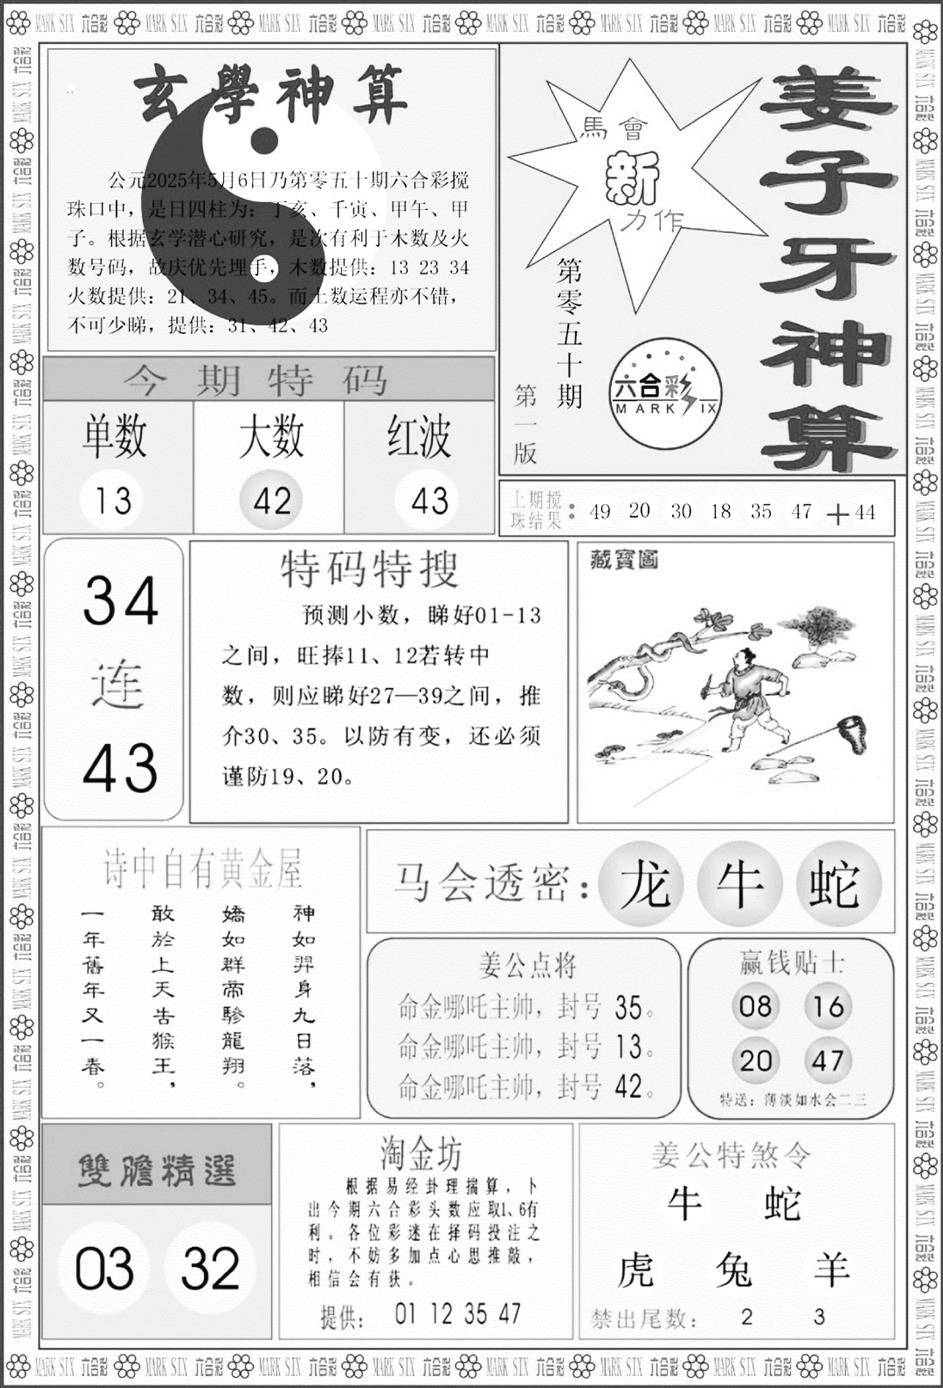 MARK SIX 六合彩
玄學神算
公元2025年5月6日乃第零五十期六合彩搅
珠口中，是日四柱为：丁亥、千寅、甲午、甲
子。根据玄学潜心研究，是次有利于木数及火
数号码，故庆优先埋手，木数提供：13 23 34
火数提供：21、34、45。而土数运程亦不错，
不可少睇，提供：31、42、43
馬會
新
力作
姜子牙神算
第零五十期
第一版
六合彩
MARK SIX
今期特码
单数 大数 红波
13 42 43
上期搅
珠结果：49 20 30 18 35 47 ＋44
34
连
43
特码特搜
预测小数，睇好01-13
之间，旺捧11、12若转中
数，则应睇好27—39之间，推
介30、35。以防有变，还必须
谨防19、20。
藏寶圖
诗中自有黄金屋
神如羿身九日落，
嬌如群帝驂龍翔。
敢於上天告猴王，
一年舊年又一春。
马会透密：龙 牛 蛇
姜公点将
命金哪吒主帅，封号 35。
命金哪吒主帅，封号 13。
命金哪吒主帅，封号 42。
赢钱贴士
08 16
20 47
特送：薄淡如水会二三
雙膽精選
03 32
淘金坊
根据易经卦理揣算，卜
出今期六合彩头数应取1、6有
利。各位彩迷在择码投注之
时，不妨多加点心思推敲，
相信会有获。
提供： 01 12 35 47
姜公特煞令
牛 蛇
虎 兔 羊
禁出尾数： 2 3